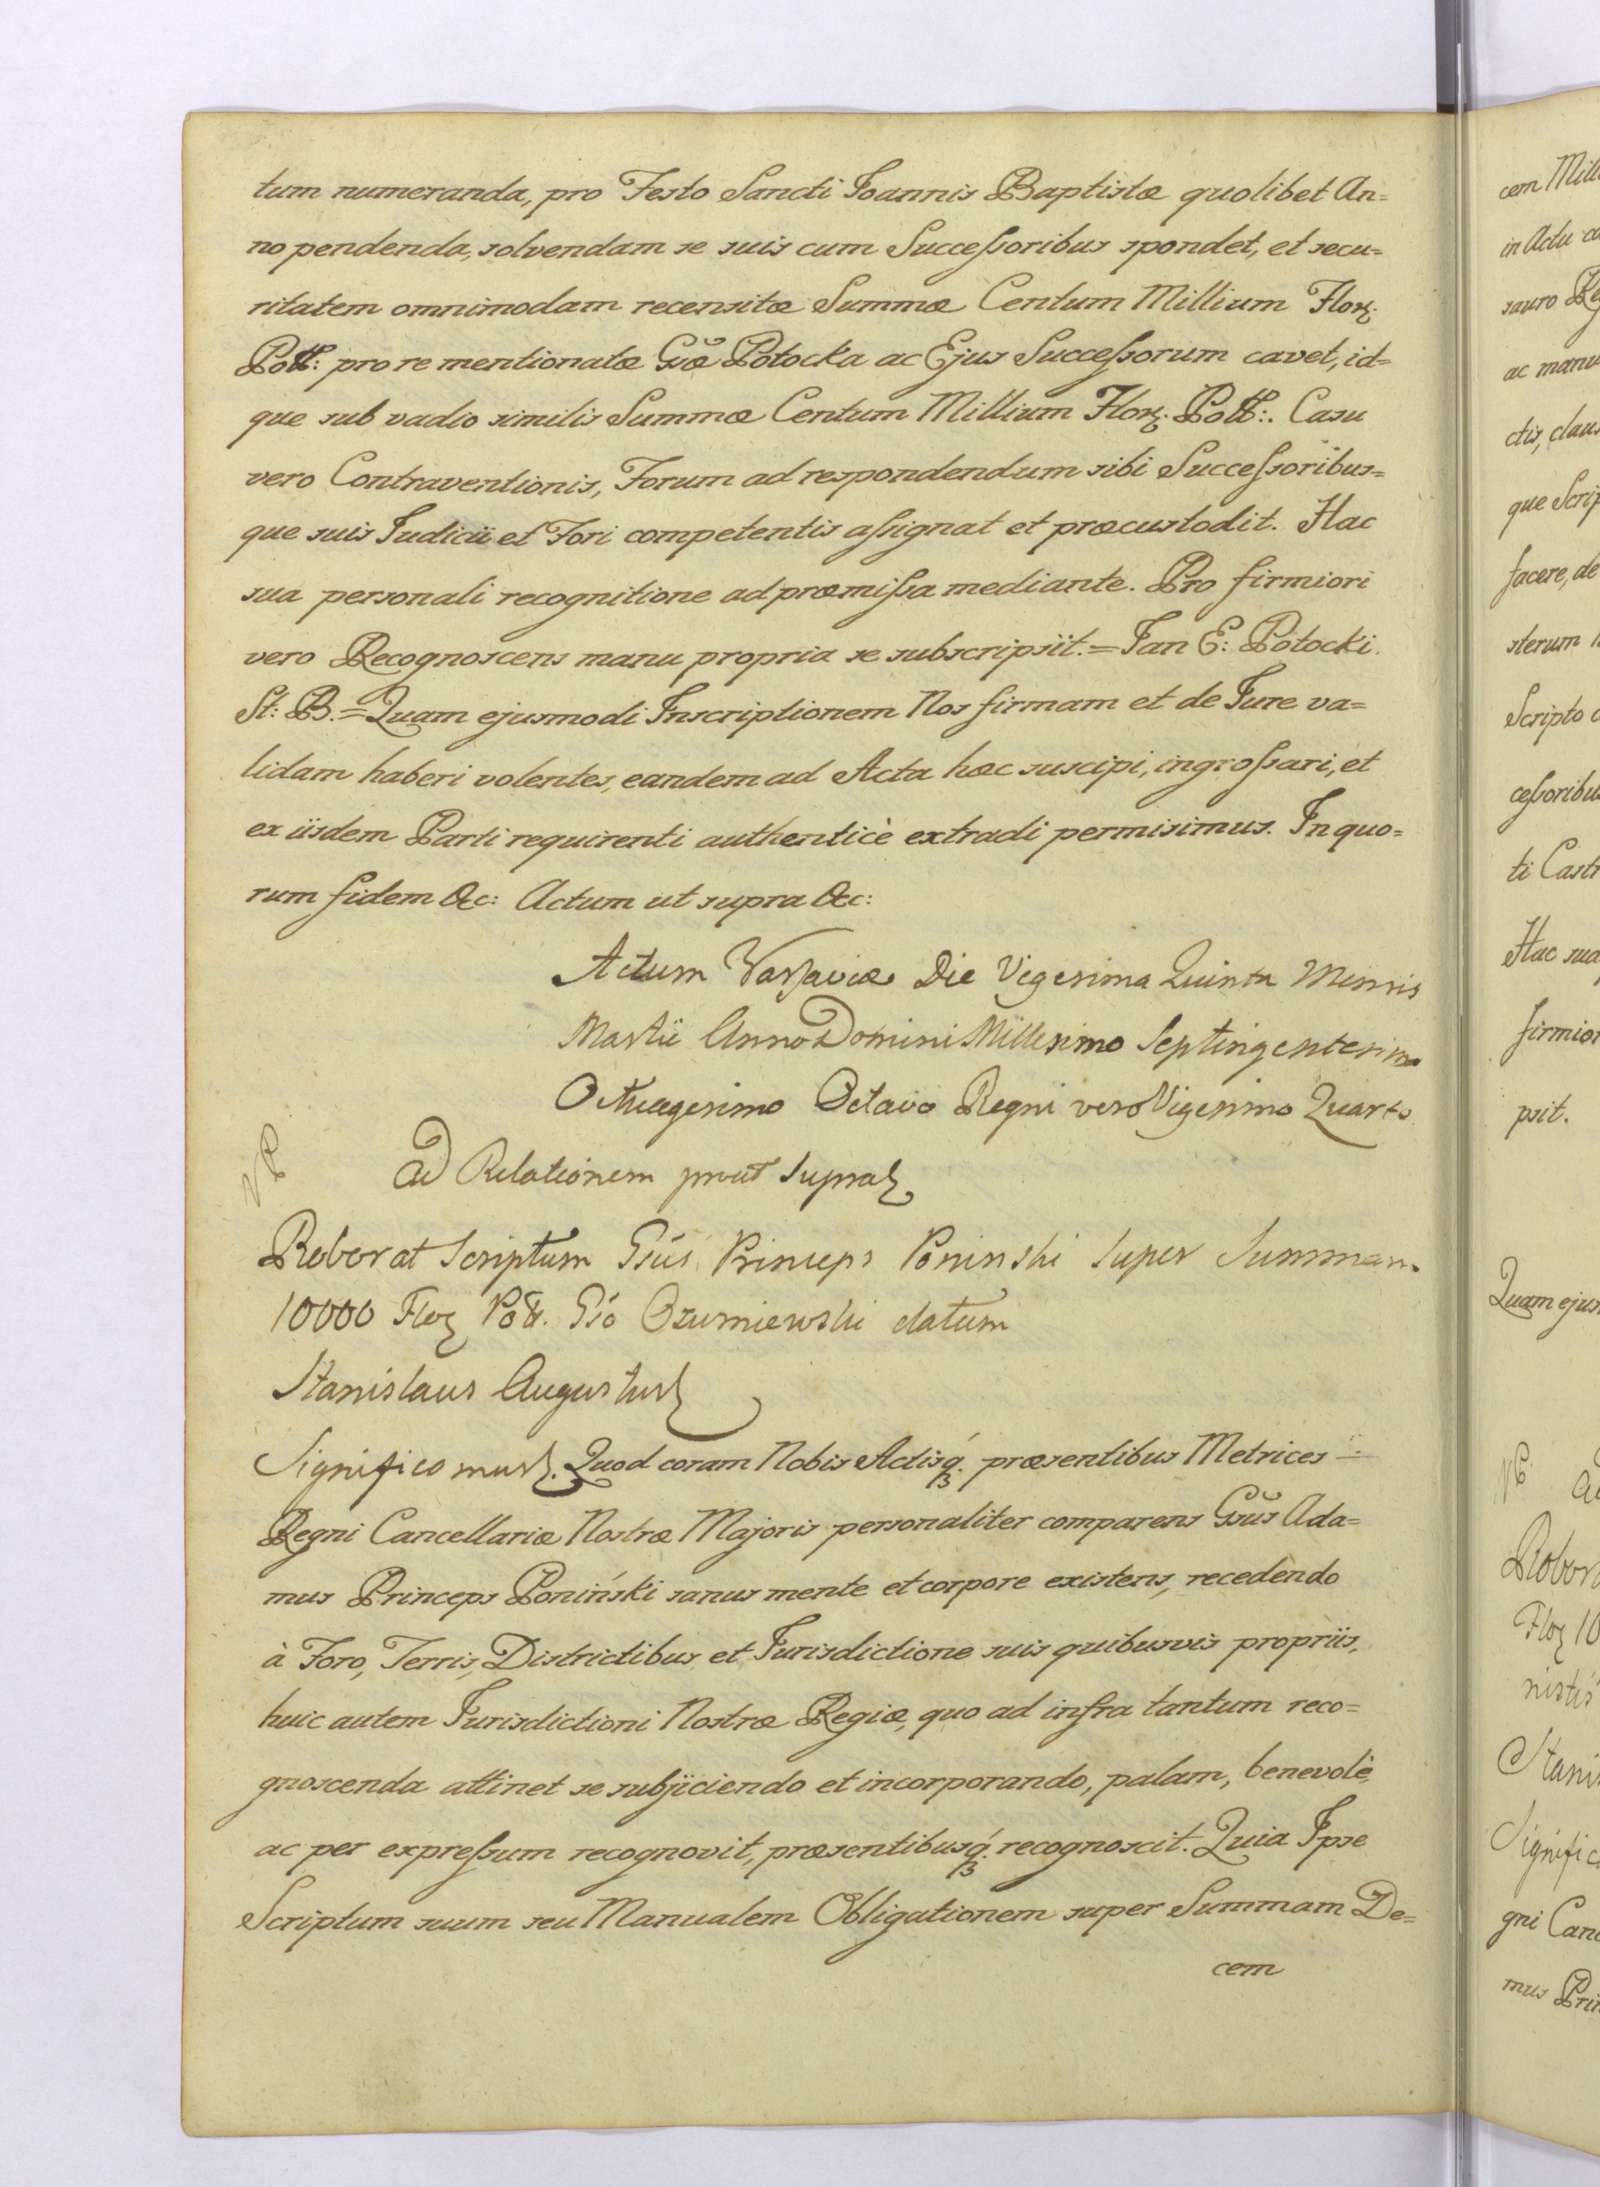 tum numeranda, pro Festo Sancti Joannis Baptistæ quolibet An=
no pendenda, solvendam se suis cum Successoribus spondet, et secu=
ritatem omnimodam recensitæ Summæ Centum Millium Flor:
Poll: pro re mentionatæ Gñæ Potocka ac Ejus Successorum cavet, id=
que sub vadio similis Summæ Centum Millium Flor: Poll:. Casu
vero Contraventionis, Forum ad respondendum sibi Successoribus=
que suis Judicii et Fori competentis assignat et præcustodit. Hac
sua personali recognitione ad præmissa mediante. Pro firmiori
vero Recognoscens manu propria se subscripsit. = Jan E: Potocki.
St: B. = Quam ejusmodi Inscriptionem Nos firmam et de Jure va=
lidam haberi volentes, eandem ad Acta hæc suscipi, ingrossari, et
ex iisdem Parti requirenti authenticè extradi permisimus. In quo=
rum fidem &c: Actum ut supra &c:
Actum Varsaviæ Die Vigesima Quinta Mensis
Martii Anno Domini Millesimo Septingentesimo
Octuagesimo Octavo Regni vero Vigesimo Quarto
Ad Relationem prout supra
Roborat Scriptum Gsús Princeps Poninski super Summam
10000 Flor Poll. Gso datum
Stanislaus Augustus
Significamus. Quod coram Nobis Actisq́ præsentibus Metrices
Regni Cancellariæ Nostræ Majoris personaliter comparens Gsŭs Ada=
mus Princeps Poniński sanus mente et corpore existens, recedendo
à Foro, Terris, Districtibus et Jurisdictione suis quibusvis propriis,
huic autem Jurisdictioni Nostræ Regiæ, quo ad infra tantum reco=
gnoscenda attinet se subjiciendo et incorporando, palam, benevolè,
ac per expressum recognovit, præsentibusq́ recognoscit. Quia Ipse
Scriptum suum seu Manualem Obligationem super Summam De=
cem